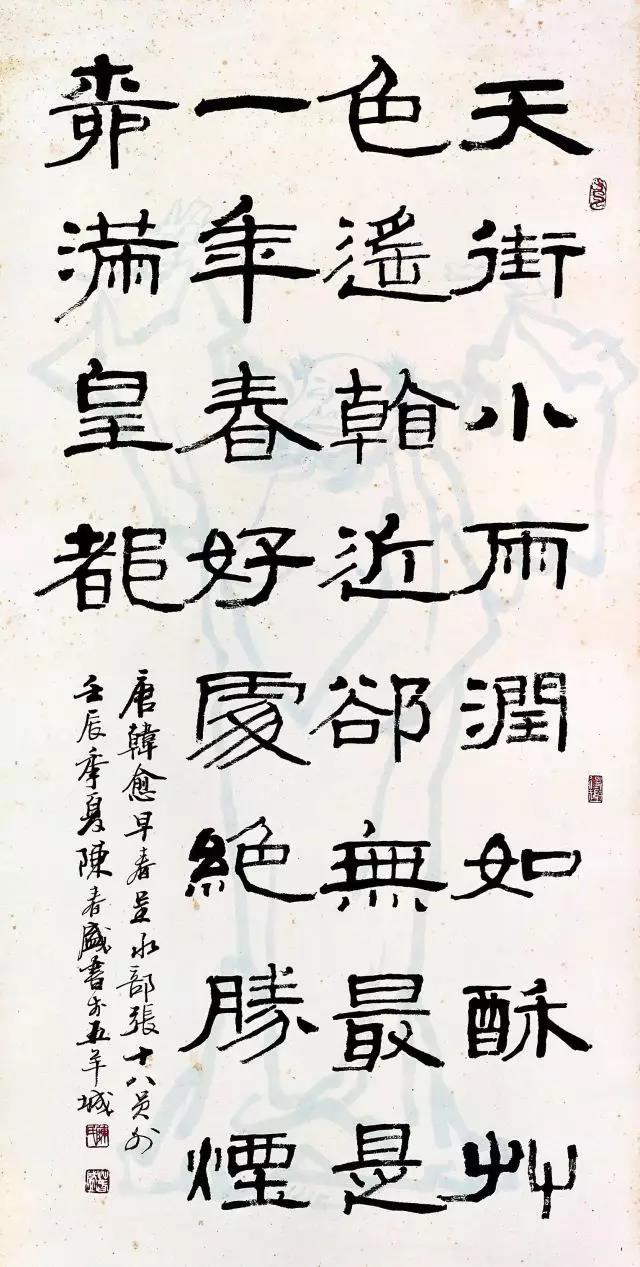 天街小雨潤如酥艸
色遙看近卻無最是
一年春好處絕勝煙
桺滿皇都
唐韓愈早春呈水部張十八員外
壬辰季夏陳春盛書於五羊城